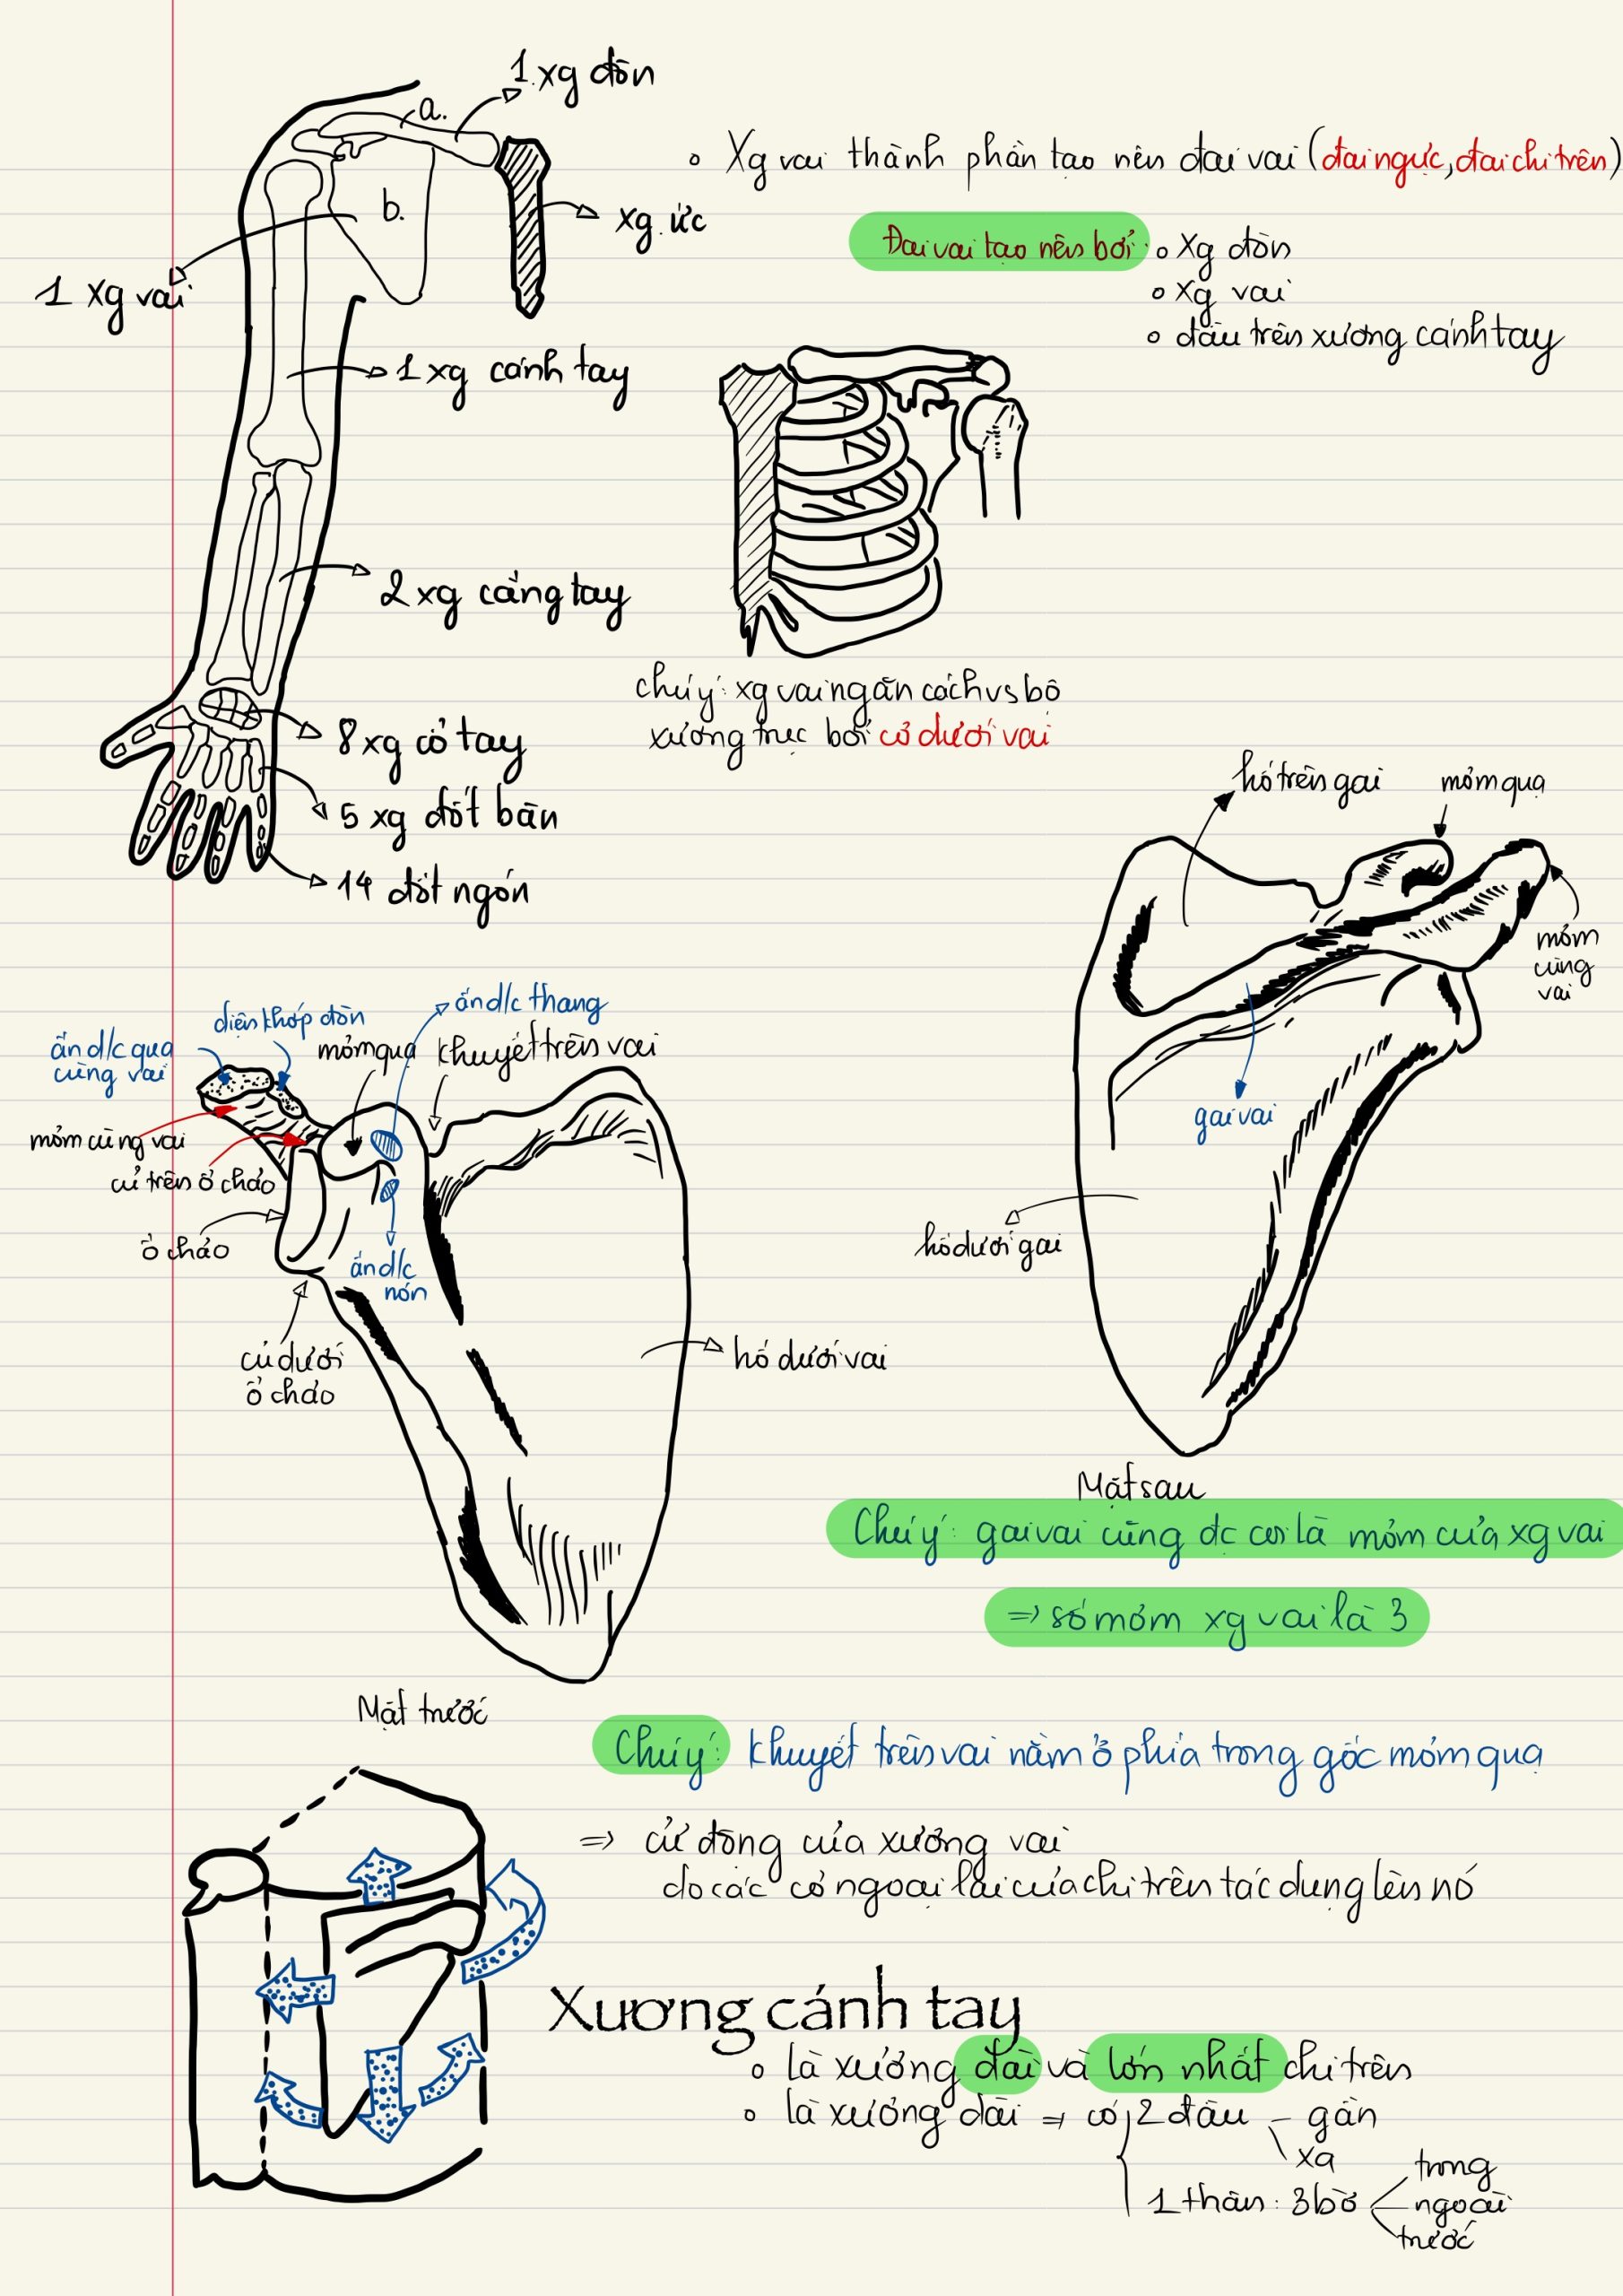 1.xg đòn
a.
b.
xg.ức
1 xg vai
1 xg cánh tay
2 xg cẳng tay
8 xg cổ tay
5 xg đốt bàn
14 đốt ngón
Xg vai thành phần tạo nên đai vai (đai ngực, đai chi trên)
Đai vai tạo nên bởi: Xg đòn
Xg vai
đầu trên xương cánh tay
chú ý: xg vai ngăn cách vs bộ
xương trục bởi cơ dưới vai
hố trên gai
mỏm quạ
mỏm
cùng
vai
gai vai
hố dưới gai
Mặt sau
Chú ý: gai vai cũng dc coi là mỏm của xg vai
=> số mỏm xg vai là 3
ấn d/c thang
diện khớp đòn
mỏm quạ
khuyết trên vai
ấn d/c quạ
cùng vai
mỏm cùng vai
củ trên ổ chảo
ổ chảo
ấn d/c
nón
củ dưới
ổ chảo
hố dưới vai
Mặt trước
Chú ý: khuyết trên vai nằm ở phía trong gốc mỏm quạ
=> cử động của xương vai
do các cơ ngoại lai của chi trên tác dụng lên nó
Xương cánh tay
là xương dài và lớn nhất chi trên
là xương dài => có 2 đầu - gần
xa
1 thân: 3 bờ
trong
ngoài
trước